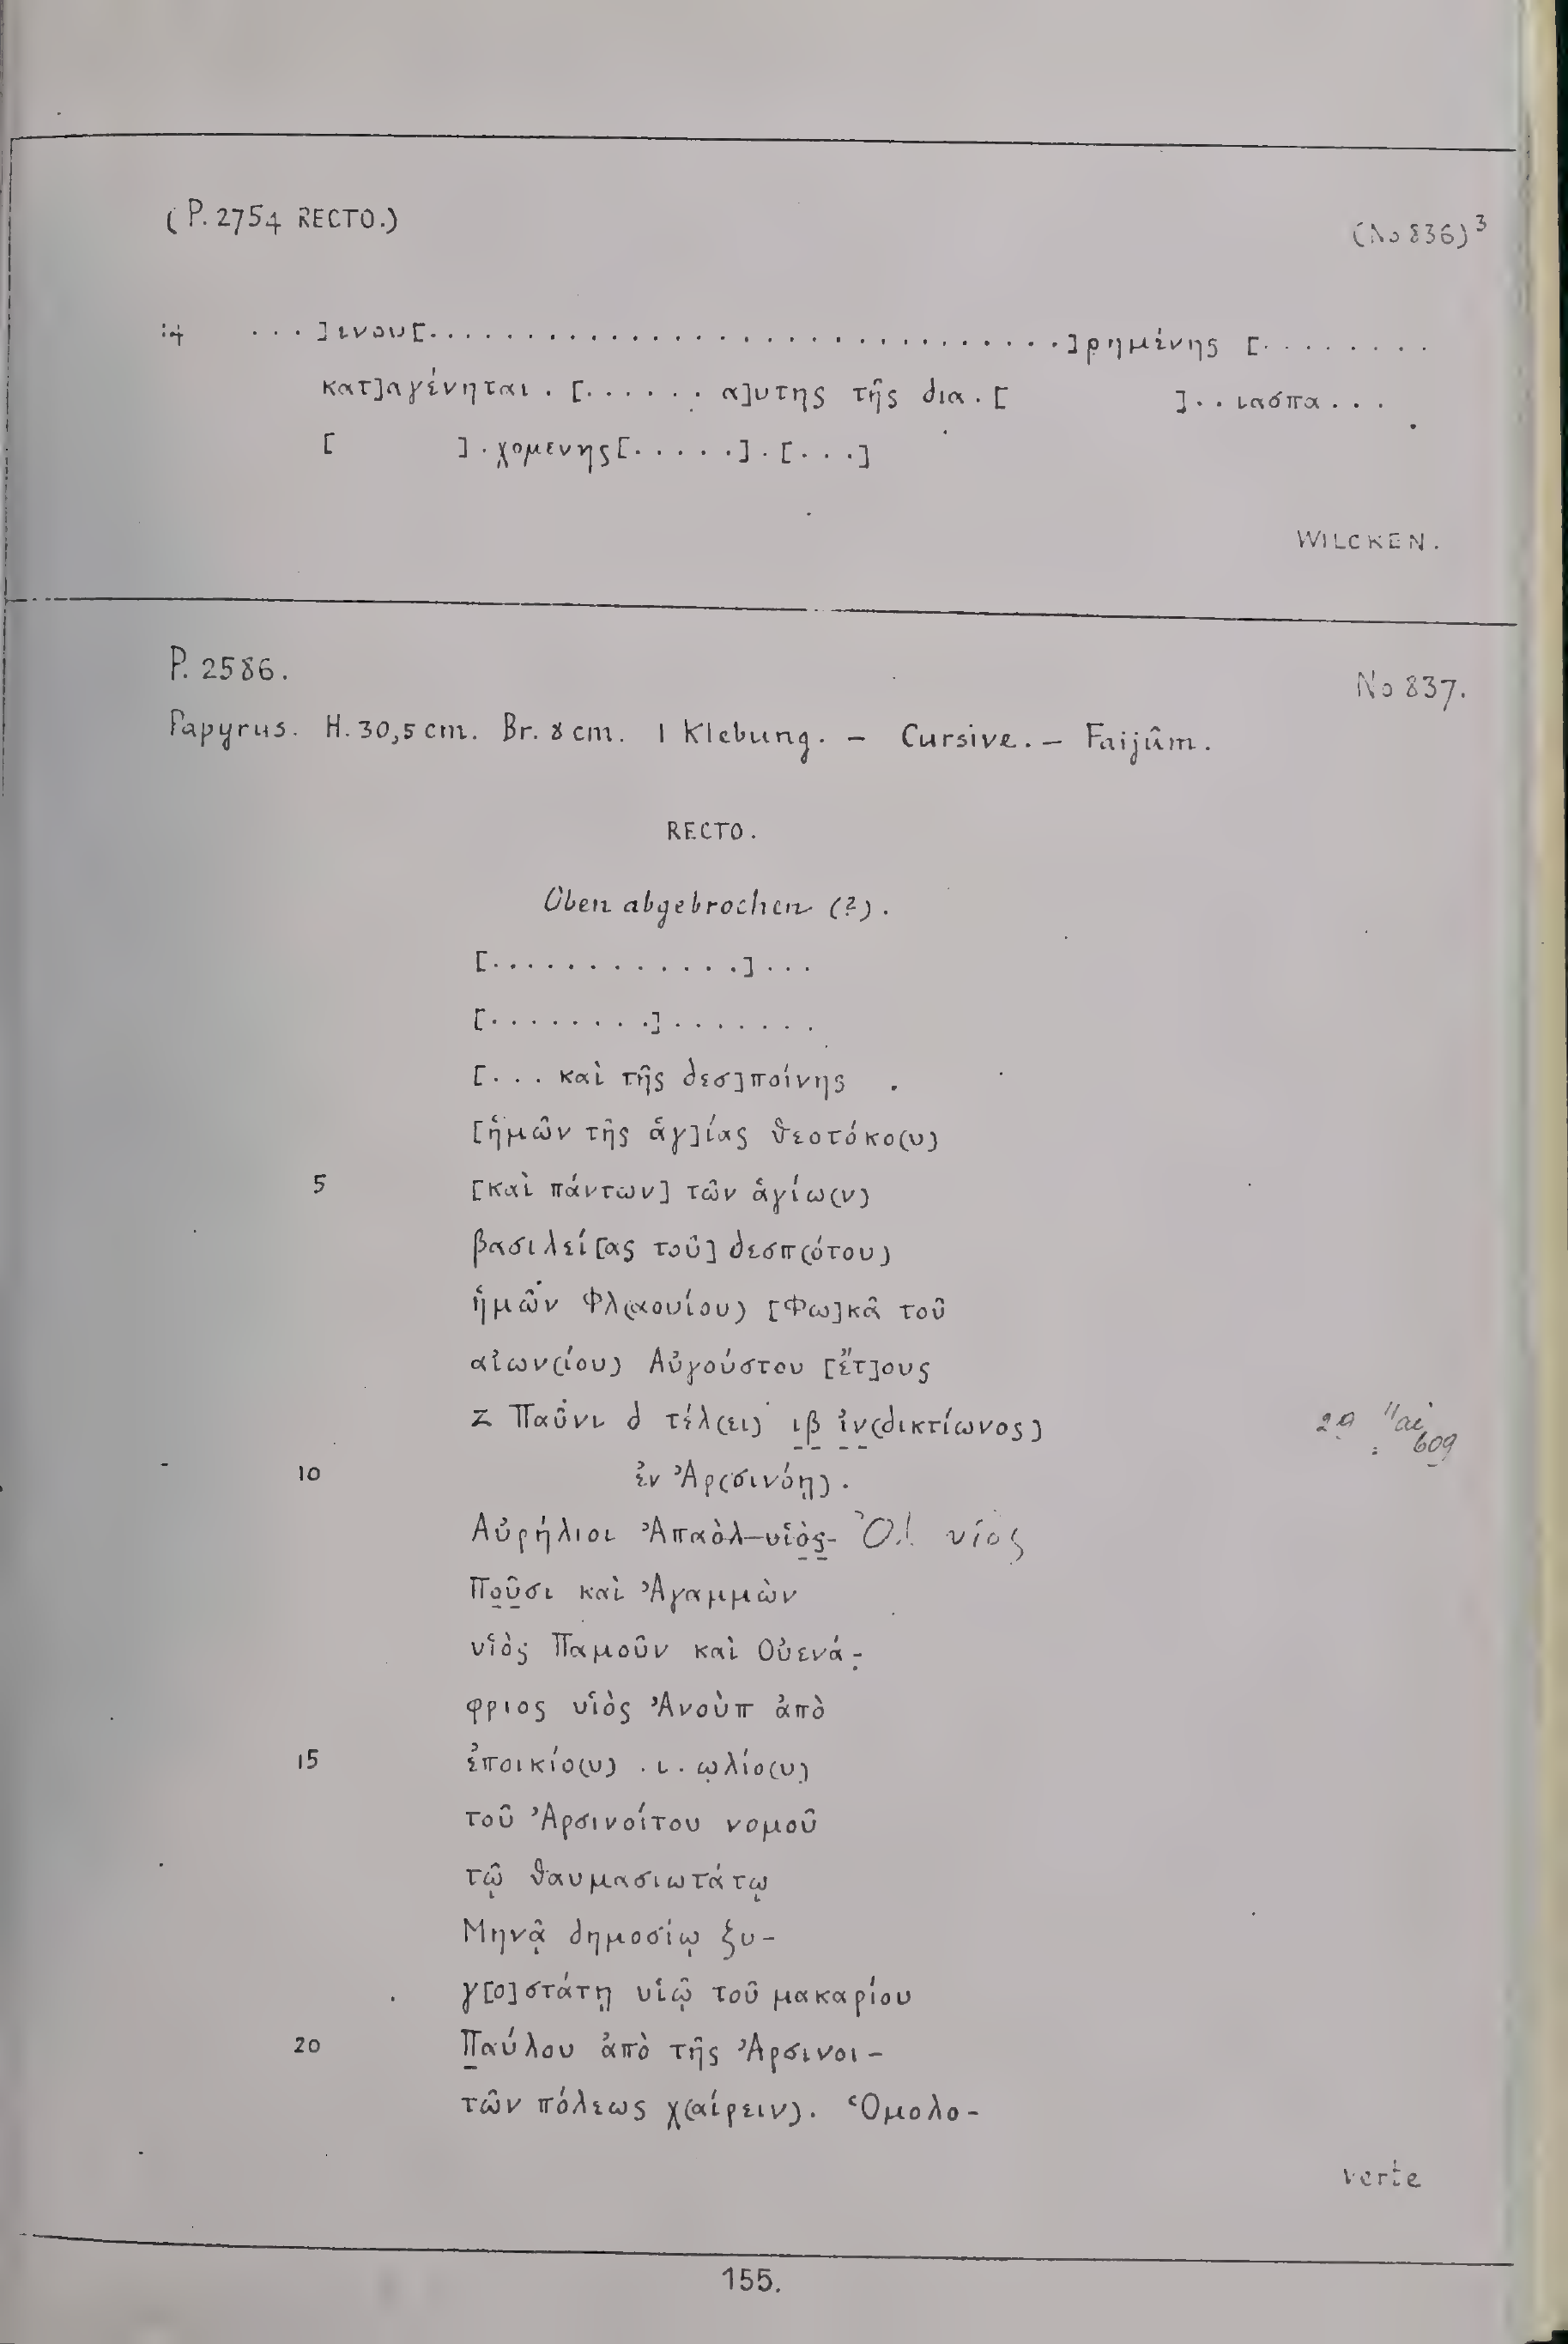 (P. 2754 RECTO.) (No 836)³
14 . . . ]ινου[. . . . . . . . . . . . . . . . . . . . . . . . . . . . .]ρημένης [. . . . . . . .
κατ]αγένηται . [. . . . . . α]υτης τῆς δια . [ ] . . ιασπα . . .
[ ] . χομενης[. . . . .] . [. . .]
WILCKEN.
P. 2586. No 837.
Papyrus. H. 30,5 cm. Br. 8 cm. 1 Klebung. – Cursive. – Faijûm.
RECTO.
Oben abgebrochen (?).
[. . . . . . . . . . . .] . . .
[. . . . . . . .] . . . . . . .
[. . . καὶ τῆς δεσ]ποίνης
[ἡμῶν τῆς ἁγ]ίας θεοτόκο(υ)
5 [καὶ πάντων] τῶν ἁγίω(ν)
βασιλεί[ας τοῦ] δεσπ(ότου)
ἡμῶν Φλ(αουίου) [Φω]κᾶ τοῦ
αἰων(ίου) Αὐγούστου [ἔτ]ους
ζ Παῦνι δ τέλ(ει) ιβ ἰν(δικτίωνος) 29 Mai 609
10 ἐν Ἀρ(σινόῃ).
Αὐρήλιοι Ἀπαὸλ υἱὸς Ὀλ υἱος
Ποῦσι καὶ Ἀγαμμὼν
υἱὸς Παμοῦν καὶ Οὐενά-
φριος υἱὸς Ἀνοὺπ ἀπὸ
15 ἐποικίο(υ) . ι . ωλίο(υ)
τοῦ Ἀρσινοίτου νομοῦ
τῷ θαυμασιωτάτῳ
Μηνᾷ δημοσίῳ ξυ-
γ[ο]στάτῃ υἱῷ τοῦ μακαρίου
20 Παύλου ἀπὸ τῆς Ἀρσινοι-
τῶν πόλεως χ(αίρειν). Ὁμολο-
verte
155.